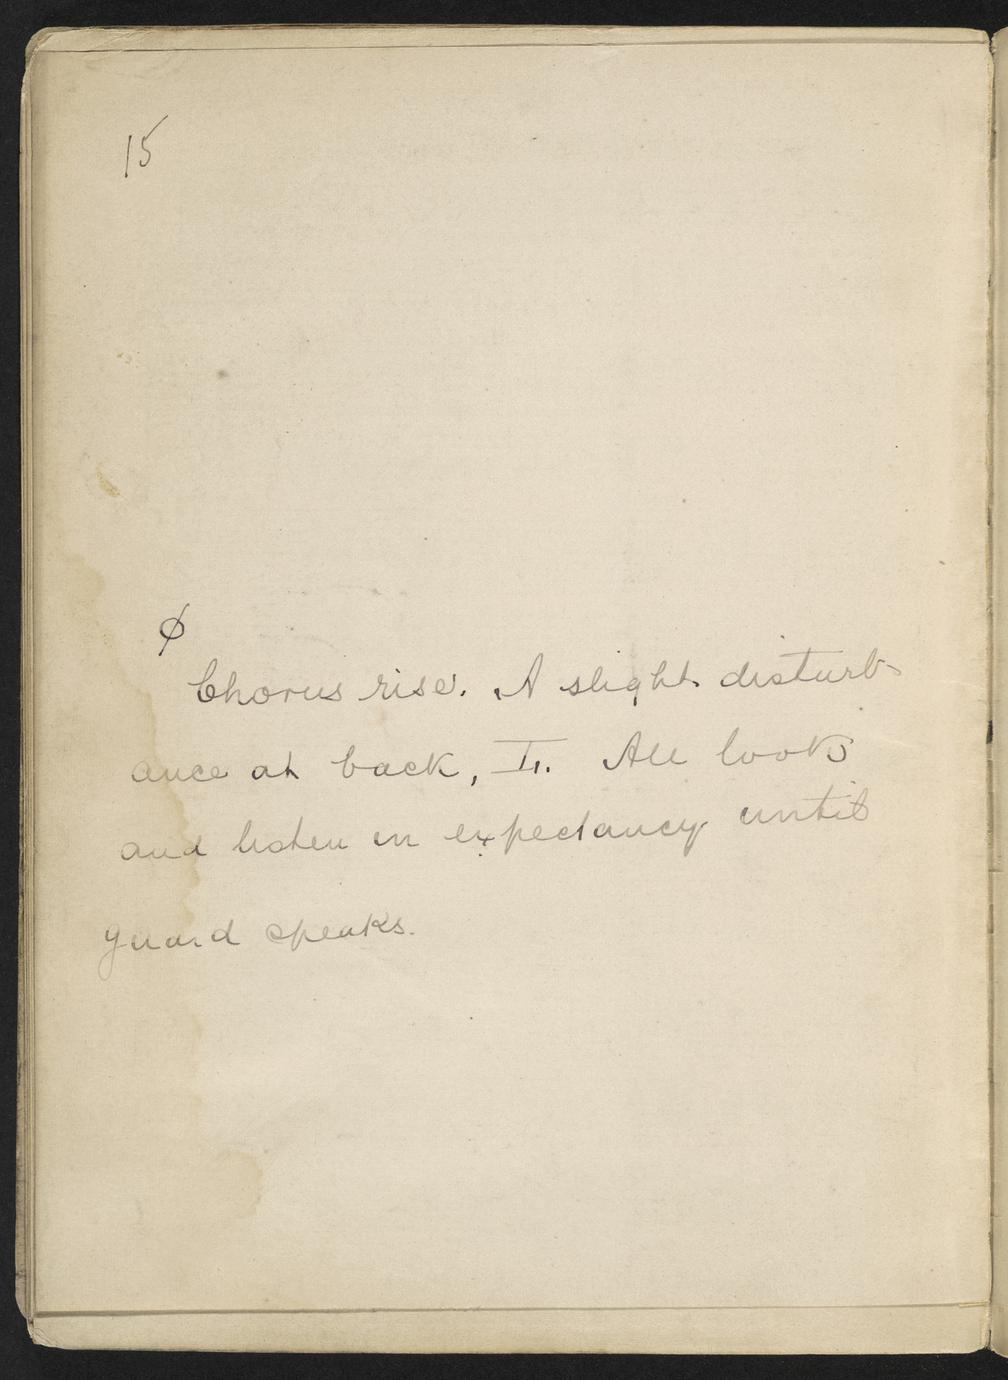 15
φ
Chorus rise. A slight disturb-
ance at back, L. All look
and listen in expectancy until
guard speaks.